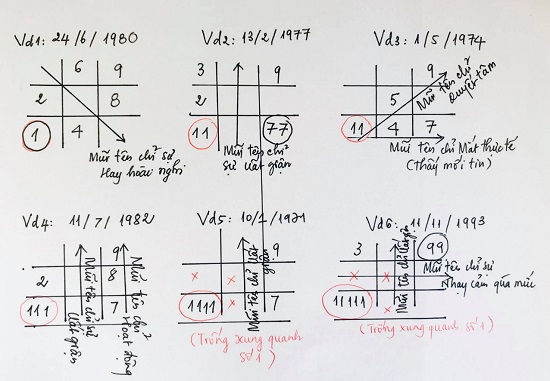 Vd1: 24/6/1980
6 9
2 8
1 4
Mũi tên chỉ sự
Hay hoài nghi
Vd2: 13/2/1977
3 9
2
11 77
Mũi tên chỉ
sự uất giận
Vd3: 1/5/1974
9
5
11 4 7
Mũi tên chỉ
quyết tâm
Mũi tên chỉ Mất thực tế
(Thấy mới tin)
Vd4: 11/7/1982
9
2 8
111 7
Mũi tên chỉ sự
Uất giận
Mũi tên chỉ
Hoạt động
Vd5: 10/1/1971
9
x x
1111 x 7
Mũi tên chỉ Uất
giận
(Trống xung quanh
số 1)
Vd6: 11/11/1993
3 99
x x
11111 x
Mũi tên chỉ Uất giận
Mũi tên chỉ sự
Nhạy cảm qúa mức
(Trống xung quanh số 1)